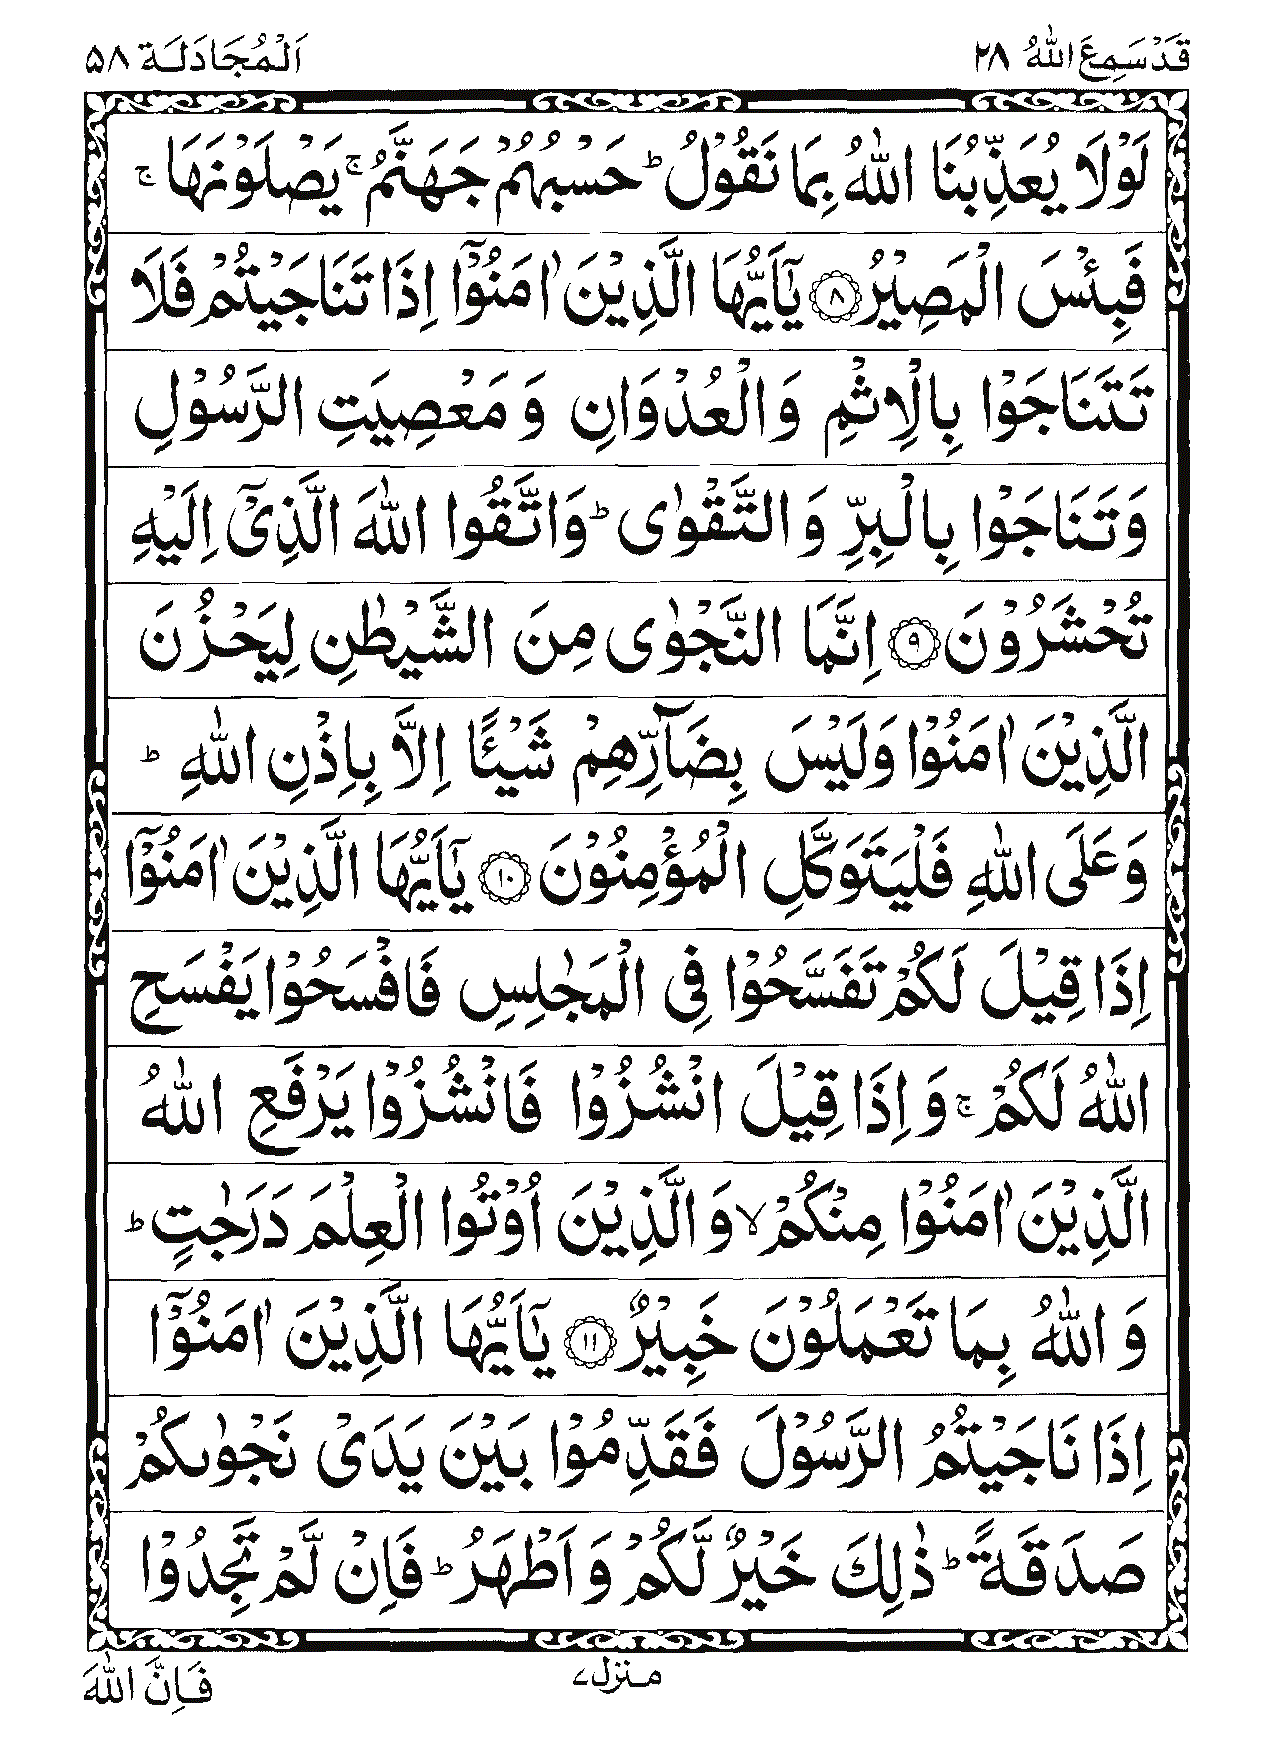 قَدْسَمِعَ اللّٰهُ ۲۸
اَلْمُجَادَلَة ۵۸
لَوْلَا يُعَذِّبُنَا اللّٰهُ بِمَا نَقُوْلُ ؕ حَسْبُهُمْ جَهَنَّمُ ۚ يَصْلَوْنَهَا ۚ
فَبِئْسَ الْمَصِيْرُ ۸ يٰۤاَيُّهَا الَّذِيْنَ اٰمَنُوْۤا اِذَا تَنَاجَيْتُمْ فَلَا
تَتَنَاجَوْا بِالْاِثْمِ وَالْعُدْوَانِ وَ مَعْصِيَتِ الرَّسُوْلِ
وَتَنَاجَوْا بِالْبِرِّ وَ التَّقْوٰى ؕ وَاتَّقُوا اللّٰهَ الَّذِيْۤ اِلَيْهِ
تُحْشَرُوْنَ ۹ اِنَّمَا النَّجْوٰى مِنَ الشَّيْطٰنِ لِيَحْزُنَ
الَّذِيْنَ اٰمَنُوْا وَلَيْسَ بِضَآرِّهِمْ شَيْـًٔا اِلَّا بِاِذْنِ اللّٰهِ ؕ
وَعَلَى اللّٰهِ فَلْيَتَوَكَّلِ الْمُؤْمِنُوْنَ ۱۰ يٰۤاَيُّهَا الَّذِيْنَ اٰمَنُوْۤا
اِذَا قِيْلَ لَكُمْ تَفَسَّحُوْا فِى الْمَجٰلِسِ فَافْسَحُوْا يَفْسَحِ
اللّٰهُ لَكُمْ ۚ وَ اِذَا قِيْلَ انْشُزُوْا فَانْشُزُوْا يَرْفَعِ اللّٰهُ
الَّذِيْنَ اٰمَنُوْا مِنْكُمْ ۙ وَ الَّذِيْنَ اُوْتُوا الْعِلْمَ دَرَجٰتٍ ؕ
وَ اللّٰهُ بِمَا تَعْمَلُوْنَ خَبِيْرٌ ۱۱ يٰۤاَيُّهَا الَّذِيْنَ اٰمَنُوْۤا
اِذَا نَاجَيْتُمُ الرَّسُوْلَ فَقَدِّمُوْا بَيْنَ يَدَىْ نَجْوٰىكُمْ
صَدَقَةً ؕ ذٰلِكَ خَيْرٌ لَّكُمْ وَ اَطْهَرُ ؕ فَاِنْ لَّمْ تَجِدُوْا
منزل۷
فَاِنَّ اللّٰهَ